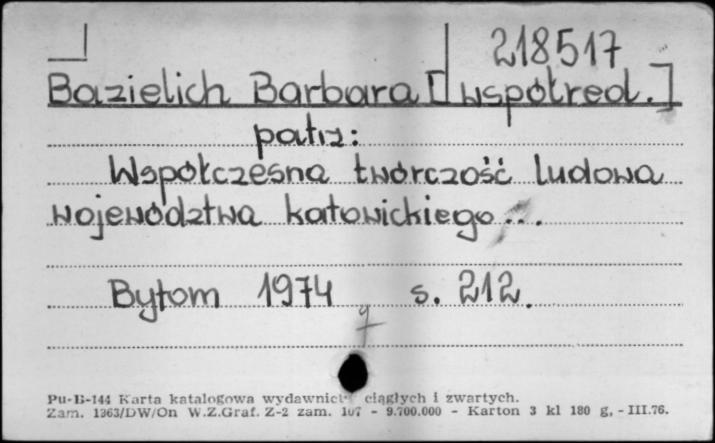 218517
Bazielich Barbara [współred.]
patrz:
Współczesna twórczość ludowa
województwa katowickiego...
Bytom 1974 s. 212.
Pu-B-144 Karta katalogowa wydawnict ciągłych i zwartych.
Zam. 1363/DW/On W.Z.Graf. Z-2 zam. 107 - 9.700.000 - Karton 3 kl 180 g. - III.76.